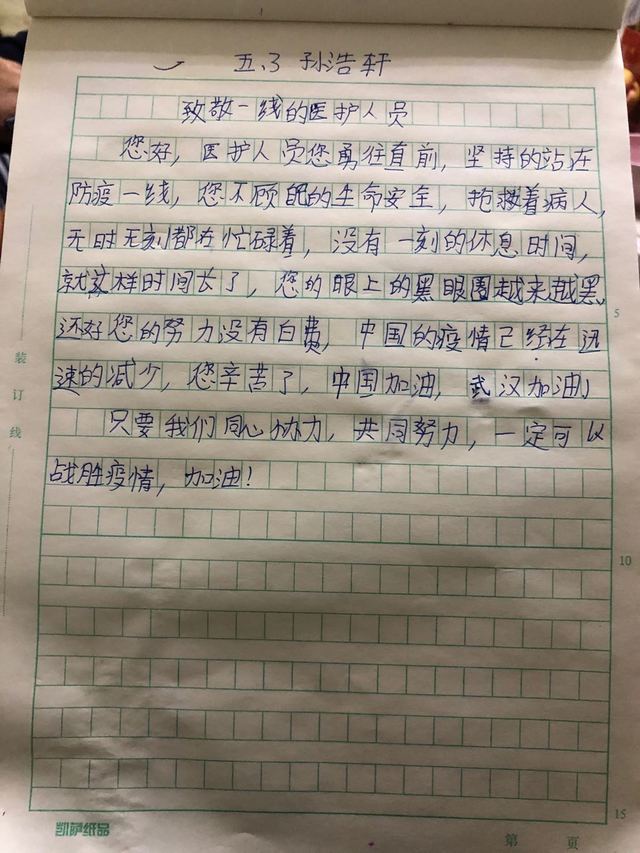 五.3 孙浩轩
致敬一线的医护人员
您好，医护人员您勇往直前，坚持的站在
防疫一线，您不顾自己的生命安全，抢救着病人，
无时无刻都在忙碌着，没有一刻的休息时间，
就这样时间长了，您的眼上的黑眼圈越来越黑，
还好您的努力没有白费，中国的疫情已经在迅
速的减少，您辛苦了，中国加油，武汉加油，
只要我们同心协力，共同努力，一定可以
战胜疫情，加油！
5
10
15
装订线
凯萨纸品
第 页